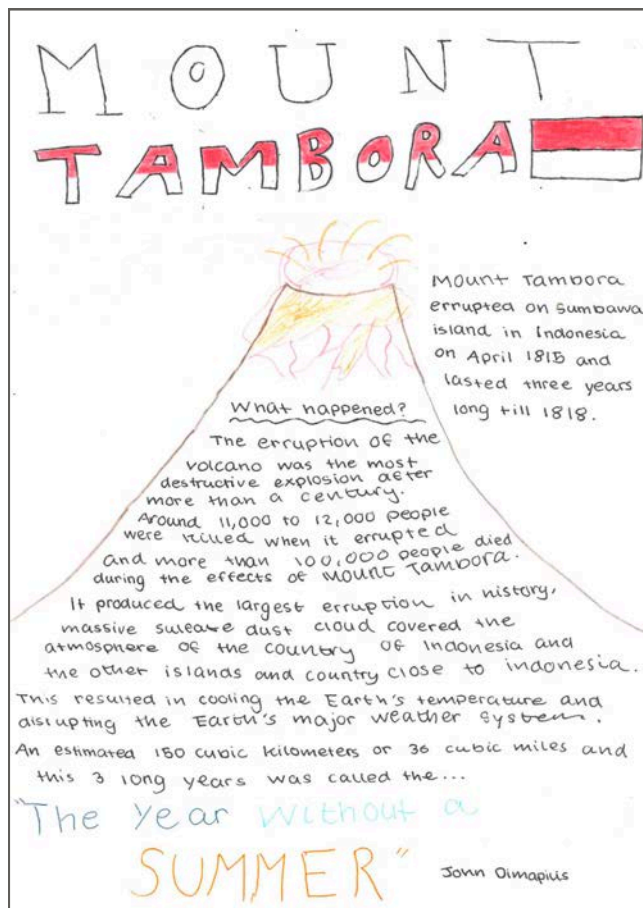 MOUNT
TAMBORA
Mount Tambora
errupted on Sumbawa
island in Indonesia
on April 1815 and
lasted three years
long till 1818.
What happened?
The erruption of the
volcano was the most
destructive explosion after
more than a century.
Around 11,000 to 12,000 people
were killed when it errupted
and more than 100,000 people died
during the effects of Mount Tambora.
It produced the largest erruption in history,
massive dust cloud covered the
atmosphere of the country of Indonesia and
the other islands and country close to indonesia.
This resulted in cooling the Earth's temperature and
disrupting the Earth's major weather system.
An estimated 150 cubic kilometers or 36 cubic miles and
this 3 long years was called the...
"The Year Without a
SUMMER"
John